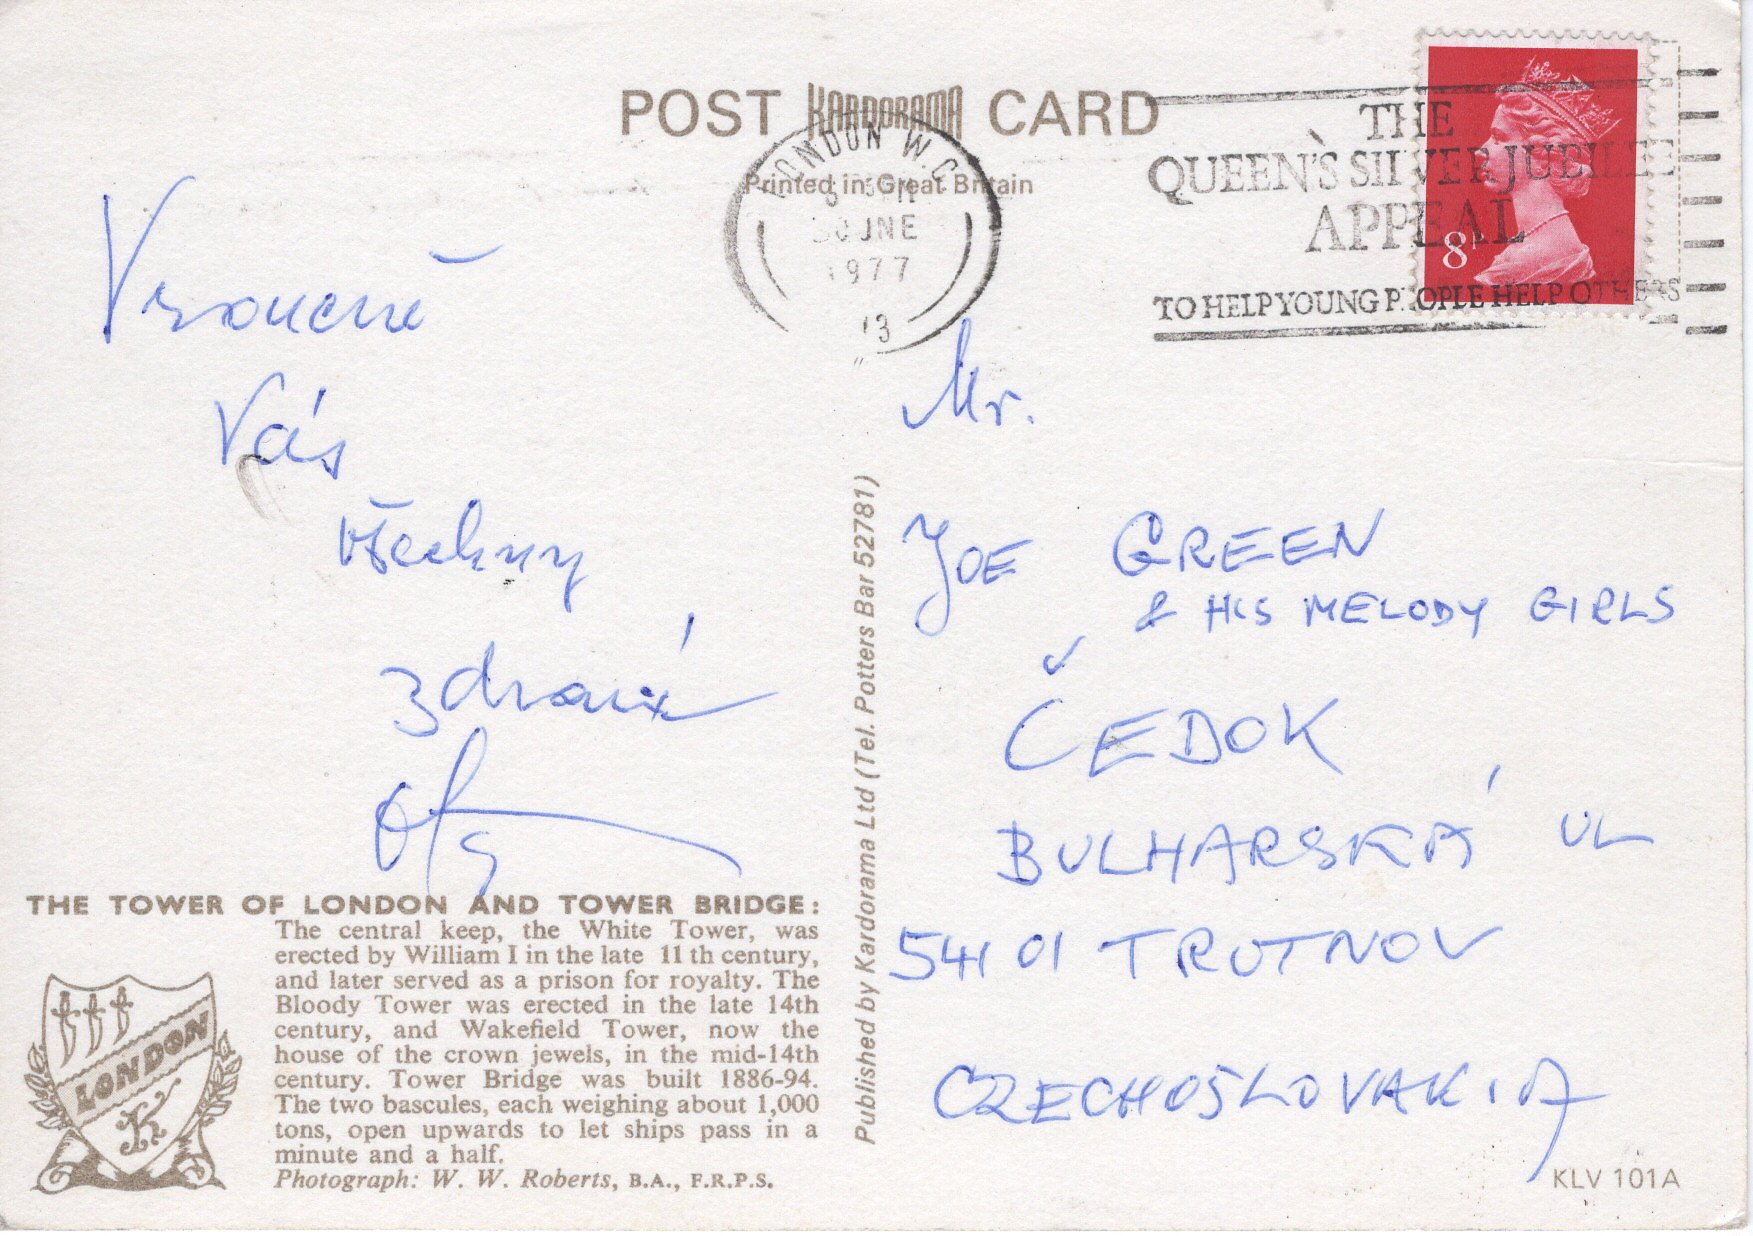 POST KARDORAMA CARD
Printed in Great Britain
LONDON W.C.
JNE
1977
13
THE
QUEEN'S SILVER JUBILEE
APPEAL
TO HELP YOUNG PEOPLE HELP OTHERS
8P
Vroucně
Vás
všechny
zdraví
Mr.
JOE GREEN
& HIS MELODY GIRLS
ČEDOK
BULHARSKÁ UL
541 01 TRUTNOV
CZECHOSLOVAKIA
Published by Kardorama Ltd (Tel. Potters Bar 52781)
THE TOWER OF LONDON AND TOWER BRIDGE:
The central keep, the White Tower, was
erected by William I in the late 11th century,
and later served as a prison for royalty. The
Bloody Tower was erected in the late 14th
century, and Wakefield Tower, now the
house of the crown jewels, in the mid-14th
century. Tower Bridge was built 1886-94.
The two bascules, each weighing about 1,000
tons, open upwards to let ships pass in a
minute and a half.
Photograph: W. W. Roberts, B.A., F.R.P.S.
LONDON
K
KLV 101A